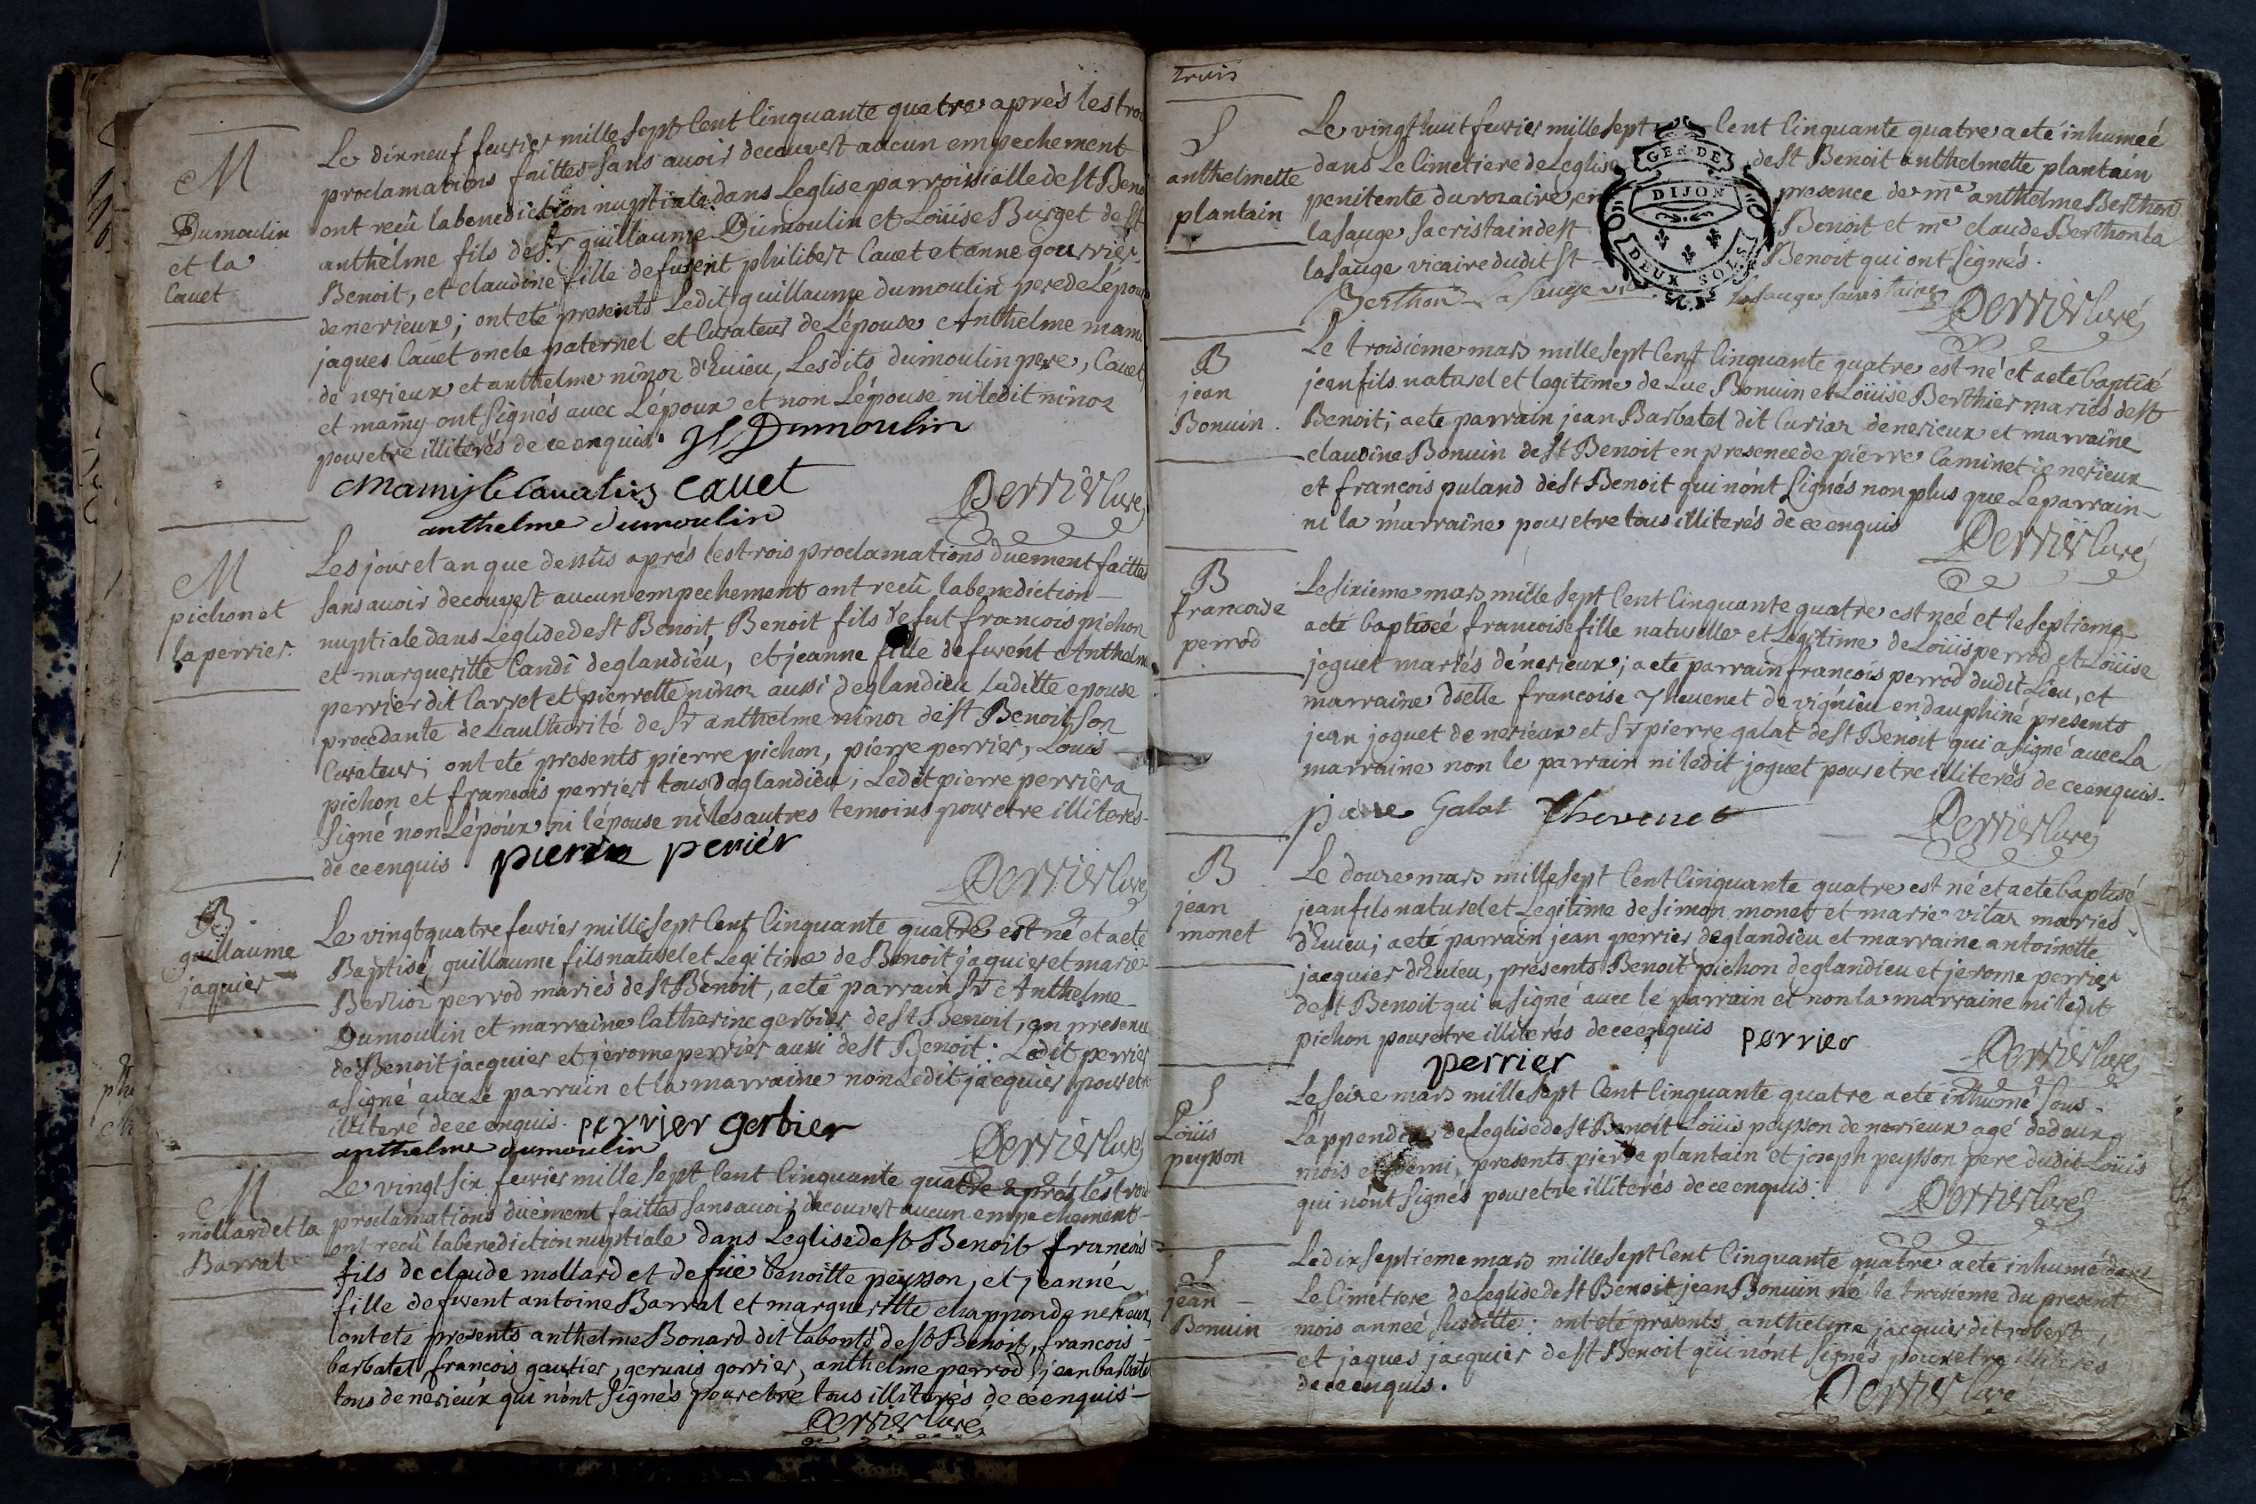 M
Dumoulin
et la
Cauet
Le dixneuf feurier mille sept cent cinquante quatre après les trois
proclamations faittes sans auoir decouuert aucun empechement
ont recû la benediction nuptiale dans Leglise parroissialle de st Benoit
anthélme fils de sr guillaume Dumoulin et Loüise Burget de st
Benoit, et claudine fille de furent philibert Cauet et anne gourrier
de nerieux; ont eté presents Ledit guillaume dumoulin pere de Lépoux
jaques Cauet oncle paternel et Curateur de Lépouse Anthelme mamy
de nerieux et anthelme ninoz d'Euieu, Lesdits dumoulin pere, Cauet
et mamy ont signés auec Lépoux et non Lépouse ni ledit ninoz
pour etre illiterés de ce enquis. Dumoulin
Mamy Cauet
anthelme dumoulin Perrier Curé
M
pichon et
la perrier.
Les jour et an que dessus aprés les trois proclamations duement faittes
sans auoir decouuert aucun empechement ont recû la benediction
nuptiale dans Leglise de st Benoit, Benoit fils de fut francois pichon
et margueritte Candi de glandieu, et jeanne fille de furent Anthelme
perrier dit Carret et pierrette ninoz aussi de glandieu Laditte epouse
procedante de Laulthorité de sr anthelme ninoz de st Benoit son
Curateur; ont eté presents pierre pichon, pierre perrier, Louis
pichon et francois perrier tous de glandieu; Ledit pierre perrier a
signé non Lépoux ni lépouse ni les autres temoins pour etre illiterés
de ce enquis pierre perier
Perrier Curé
B
guillaume
jaquier
Le vingtquatre feurier mille sept cent Cinquante quatre est né et a eté
Baptisé guillaume fils naturel et Legitime de Benoit jaquier et marie
Berlioz perrod mariés de st Benoit, a eté parrain sr Anthelme
Dumoulin et marraine Catherine gerbier de st Benoit, en presence
de Benoit jacquier et jerome perrier aussi de st Benoit: Ledit perrier
a signé auec Le parrain et la marraine non Ledit jacquier pour etre
illiteré de ce enquis. perrier gerbier
anthelme dumoulin Perrier Curé
M
mollard et la
Barral
Le vingt six feurier mille sept cent Cinquante quatre aprés les trois
proclamations düement faittes sans auoir decouuert aucun empechement
ont recû la benediction nuptiale dans Leglise de st Benoit francois
fils de claude mollard et de füe benoitte peysson, et jeanne
fille de furent antoine Barral et margueritte chappond de nerieux
ont eté presents anthelme Bonard dit labonté de st Benoit, francois
barbatel, francois gautier, geruais gorrier, anthelme perrod, jean barbatel
tous de nerieux qui n'ont signés pour etre tous illiterés de ce enquis
Perrier Curé
trois
S
anthelmette
plantain
Le vingt huit feurier mille sept cent Cinquante quatre a eté inhumeé
dans Le Cimetiere de Leglise de st Benoit anthelmette plantain
penitente du rozaire, en presence de me anthelme Berthon
lasauge sacristain de st Benoit et me claude Berthon la
lasauge vicaire dudit st Benoit qui ont signés.
GEN. DE
DIJON
DEUX SOLS
Berthon Lasauge vic Lasauge sacristain Perrier Curé
B
jean
Bonuin.
Le troisiéme mars mille sept cent Cinquante quatre est né et a eté baptisé
jean fils naturel et legitime de Luc Bonuin et Loüise Berthier mariés de st
Benoit; a eté parrain jean Barbatel dit Curiaz de nerieux et marraine
claudine Bonuin de st Benoit en presence de pierre Caminet de nerieux
et francois puland de st Benoit qui n'ont signés non plus que Le parrain
ni la marraine pour etre tous illiterés de ce enquis
Perrier Curé
B
francoise
perrod
Le sixieme mars mille sept cent Cinquante quatre est neé et le septieme
a eté baptiseé francoise fille naturelle et Legitime de Loüis perrod et Loüise
joguet mariés de nerieux; a eté parrain francois perrod dudit Lieu, et
marraine dselle francoise Theuenet de vignieu en dauphiné presents
jean joguet de nerieux et sr pierre galat de st Benoit qui a signé auec La
marraine non le parrain ni ledit joguet pour etre illiterés de ce enquis.
pierre Galat Thevenet
Perrier Curé
B
jean
monet
Le douze mars mille sept Cent Cinquante quatre est né et a eté baptisé
jean fils naturel et Legitime de simon monet et marie vitaz mariés
d'Euieu; a eté parrain jean perrier de glandieu et marraine antoinette
jacquier d'Euieu, presents Benoit pichon de glandieu et jerome perrier
de st Benoit qui a signé auec le parrain et non la marraine ni ledit
pichon pour etre illiterés de ce enquis perrier
perrier Perrier Curé
S
Loüis
peysson
Le seize mars mille sept Cent Cinquante quatre a eté inhumé sous
Lappendix de Leglise de st Benoit Loüis peysson de nerieux agé de deux
mois et demi, presents pierre plantain et joseph peysson pere dudit Loüis
qui n'ont signés pour etre illiterés de ce enquis.
Perrier Curé
S
jean
Bonuin
Le dix septieme mars mille sept Cent Cinquante quatre a eté inhumé dans
Le Cimetiere de Leglise de st Benoit jean Bonuin né le troisieme du present
mois anneé susditte: ont eté presents anthelme jacquier dit robert,
et jaques jacquier de st Benoit qui n'ont signés pour etre illiterés
de ce enquis.
Perrier Curé